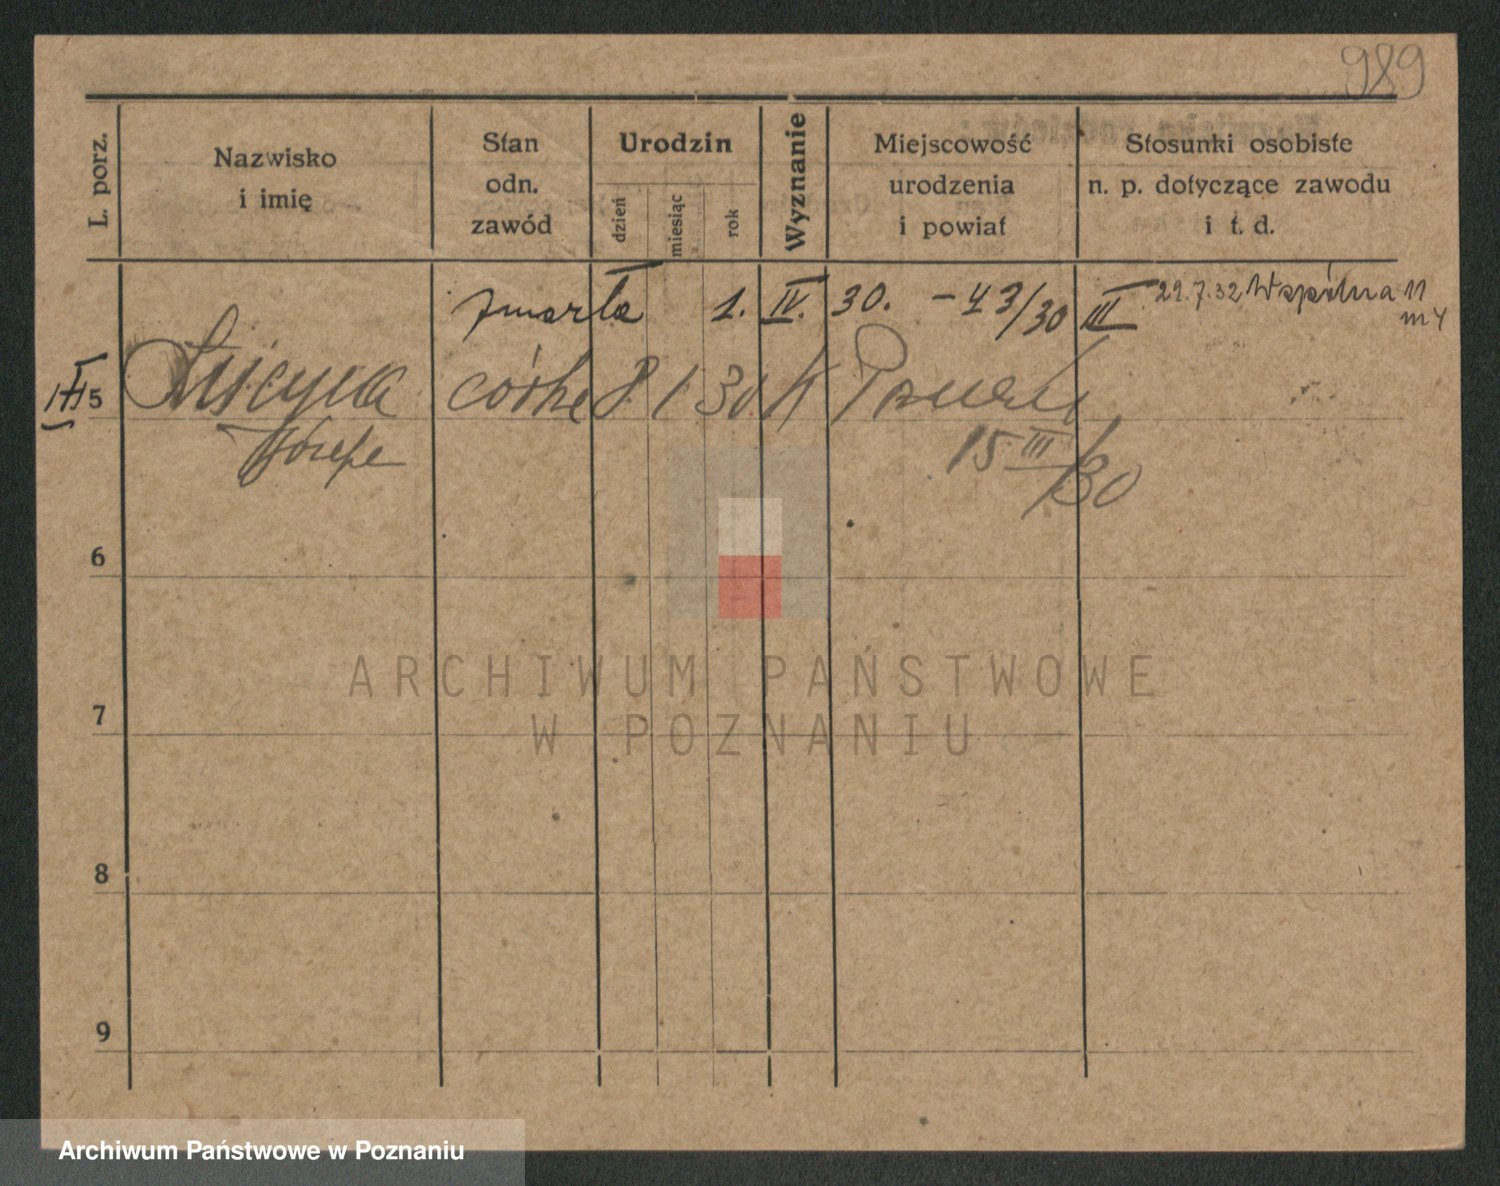 989
L. porz.
Nazwisko
i imię
Stan
odn.
zawód
Urodzin
dzień
miesiąc
rok
Wyznanie
Miejscowość
urodzenia
i powiat
Stosunki osobiste
n. p. dotyczące zawodu
i t. d.
zmarła 1. IV. 30. – 43/30 III 29.7.32 Wspólna 11
m 4
5 córka 8 1 30 K
Józefa 15 III/30
6
7
8
9
ARCHIWUM PAŃSTWOWE
W POZNANIU
Archiwum Państwowe w Poznaniu